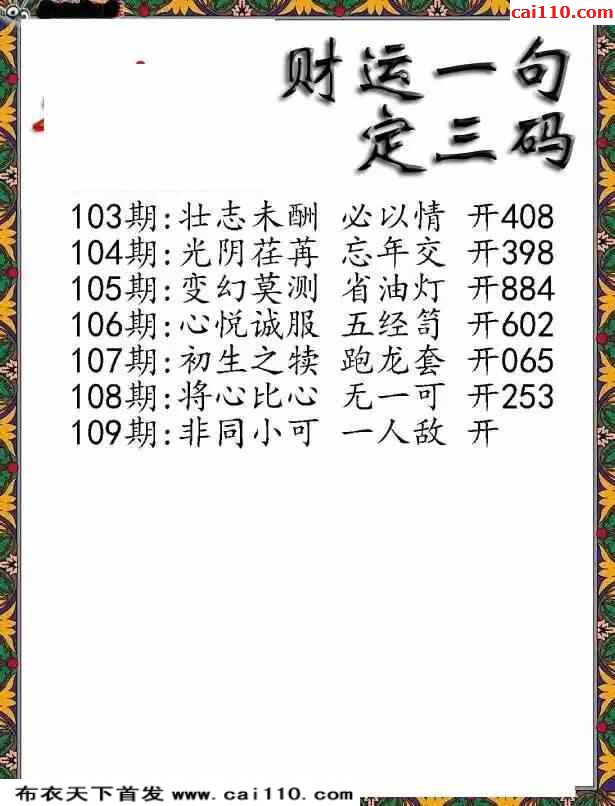 cai110.com
财运一句
定三码
103期:壮志未酬 必以情 开408
104期:光阴荏苒 忘年交 开398
105期:变幻莫测 省油灯 开884
106期:心悦诚服 五经笥 开602
107期:初生之犊 跑龙套 开065
108期:将心比心 无一可 开253
109期:非同小可 一人敌 开
布衣天下首发 www.cai110.com